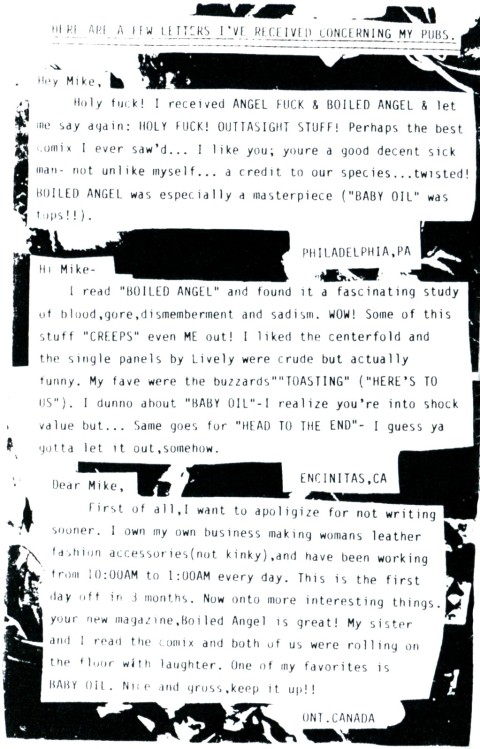 HERE ARE A FEW LETTERS I'VE RECEIVED CONCERNING MY PUBS.
Hey Mike,
Holy fuck! I received ANGEL FUCK & BOILED ANGEL & let
me say again: HOLY FUCK! OUTTASIGHT STUFF! Perhaps the best
comix I ever saw'd... I like you; youre a good decent sick
man- not unlike myself... a credit to our species...twisted!
BOILED ANGEL was especially a masterpiece ("BABY OIL" was
tops!!).
PHILADELPHIA,PA
Hi Mike-
I read "BOILED ANGEL" and found it a fascinating study
of blood,gore,dismemberment and sadism. WOW! Some of this
stuff "CREEPS" even ME out! I liked the centerfold and
the single panels by Lively were crude but actually
funny. My fave were the buzzards""TOASTING" ("HERE'S TO
US"). I dunno about "BABY OIL"-I realize you're into shock
value but... Same goes for "HEAD TO THE END"- I guess ya
gotta let it out,somehow.
ENCINITAS,CA
Dear Mike,
First of all,I want to apoligize for not writing
sooner. I own my own business making womans leather
fashion accessories(not kinky),and have been working
from 10:00AM to 1:00AM every day. This is the first
day off in 3 months. Now onto more interesting things.
your new magazine,Boiled Angel is great! My sister
and I read the comix and both of us were rolling on
the floor with laughter. One of my favorites is
BABY OIL. Nice and gross,keep it up!!
ONT.CANADA